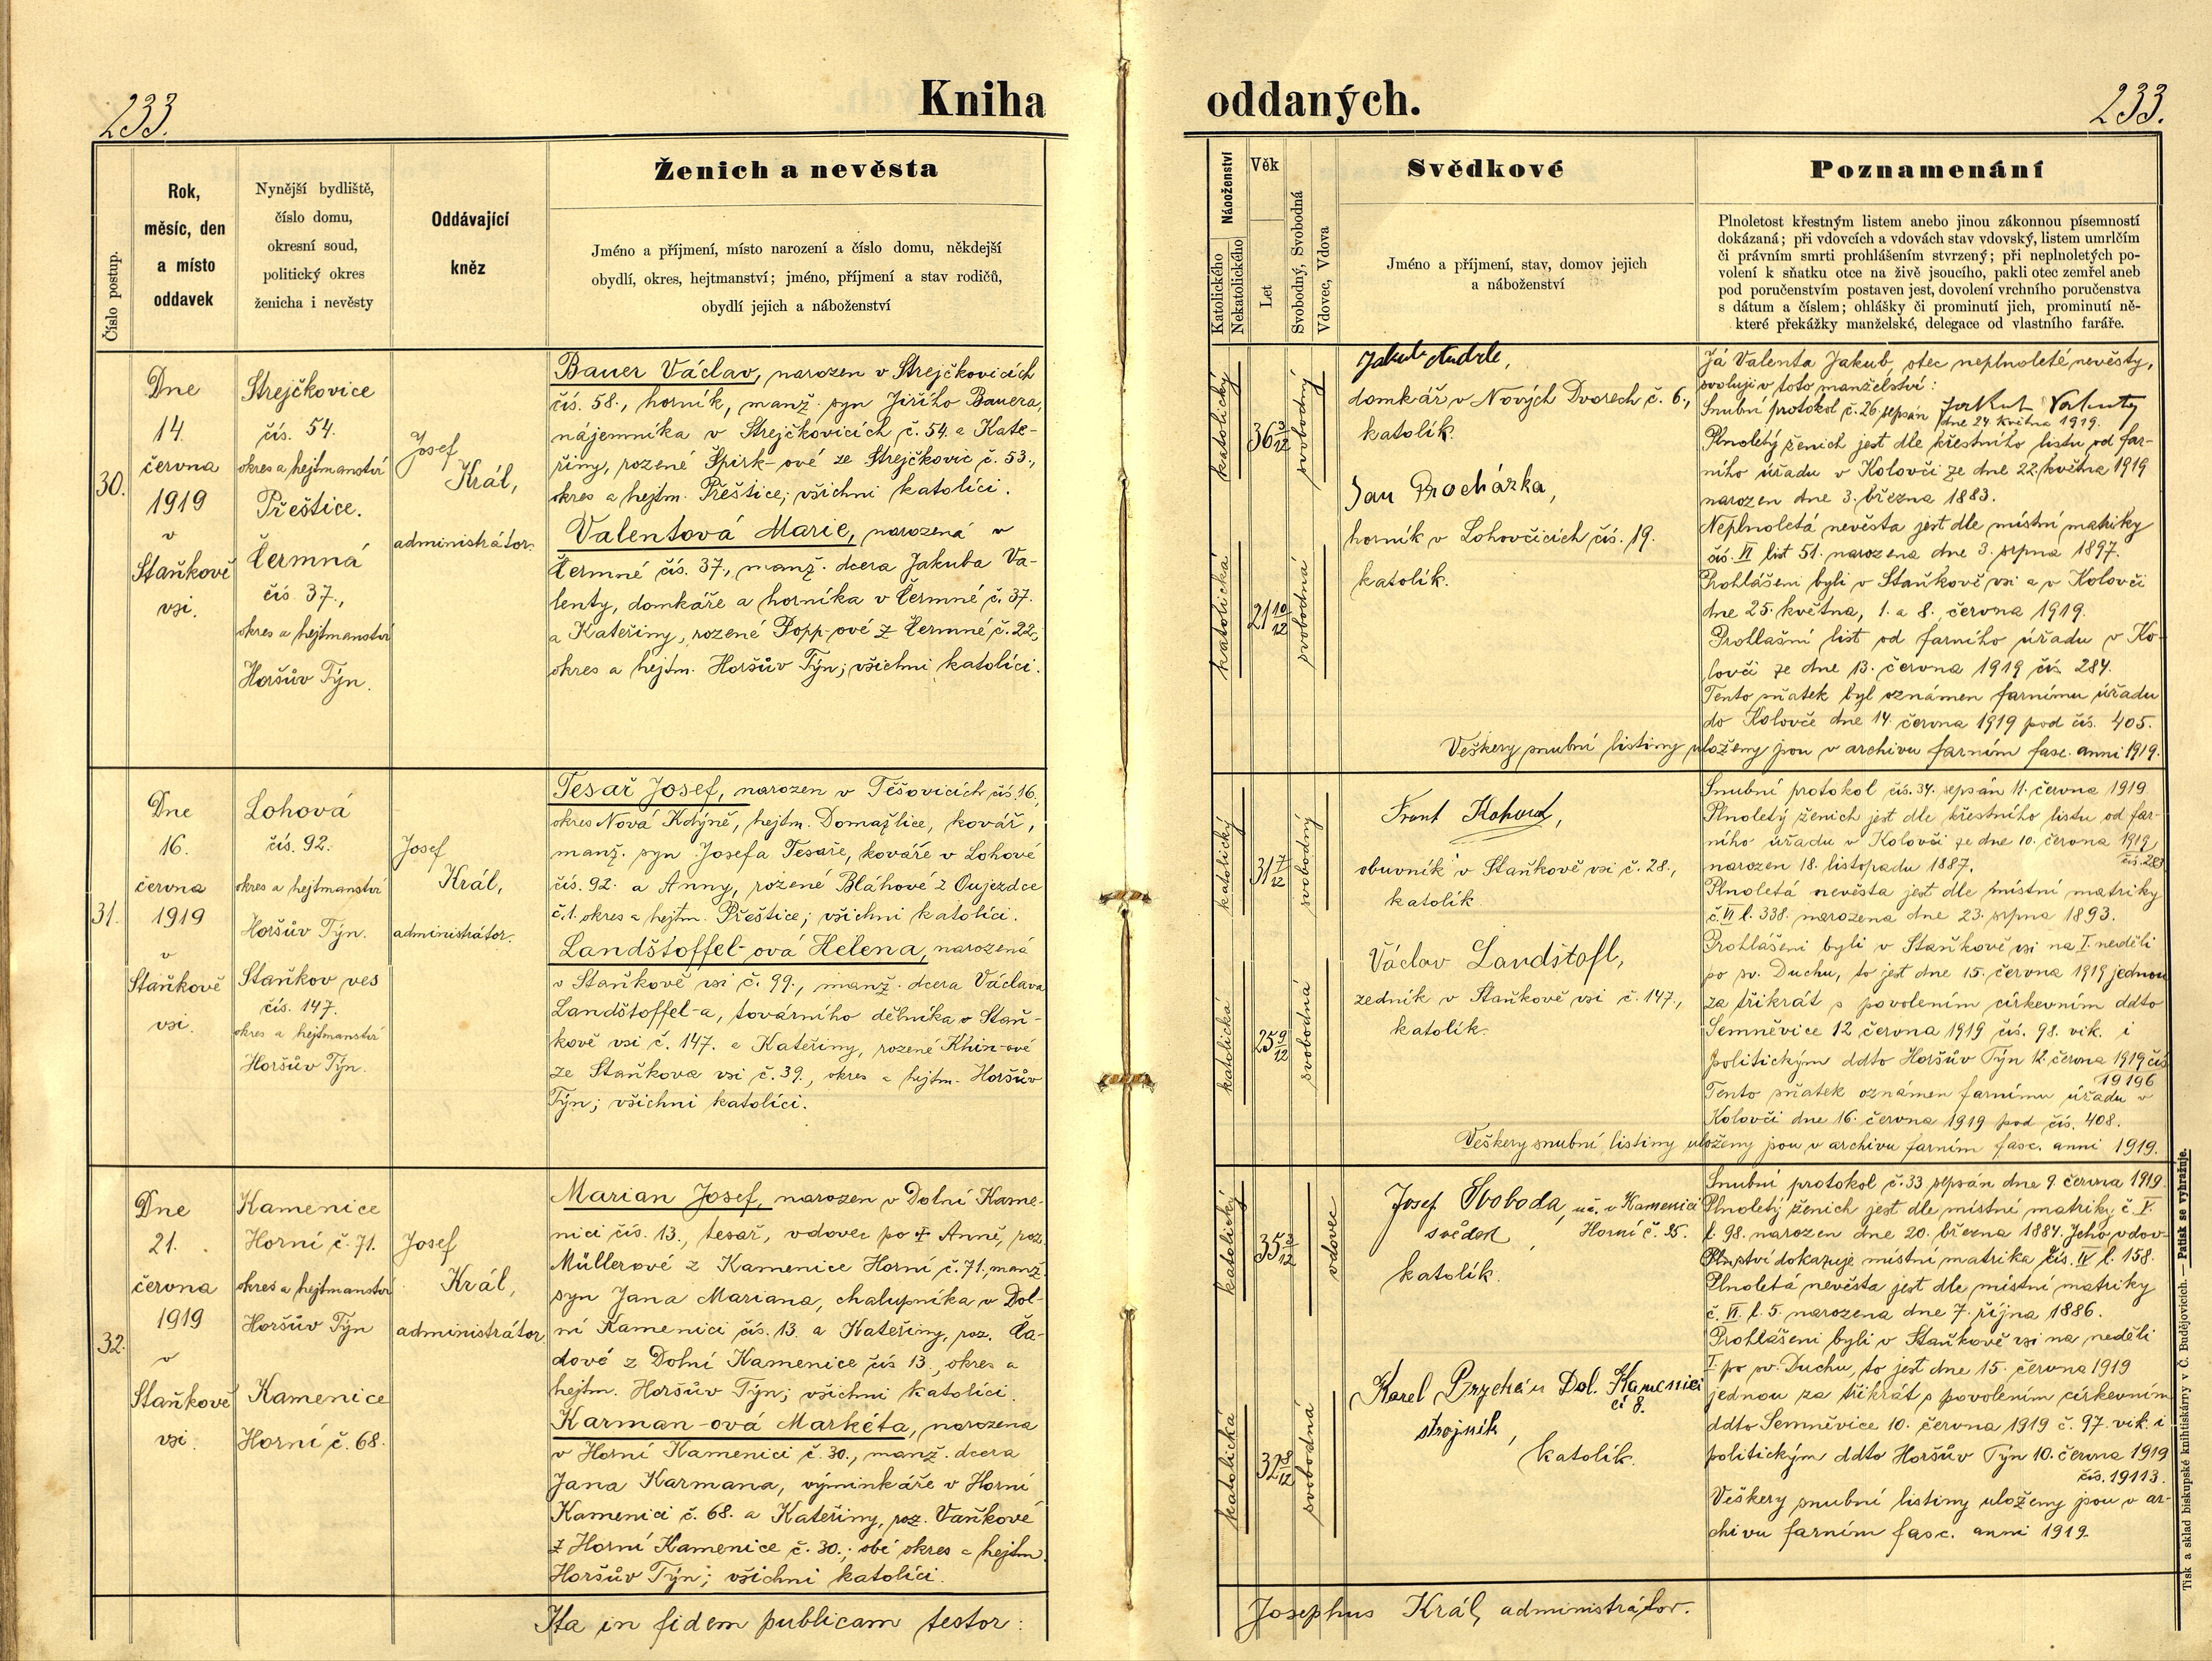 233.
Kniha
oddaných.
233.
Číslo postup.
Rok,
měsíc, den
a místo
oddavek
Nynější bydliště,
číslo domu,
okresní soud,
politický okres
ženicha i nevěsty
Oddávající
kněz
Ženich a nevěsta
Jméno a příjmení, místo narození a číslo domu, někdejší
obydlí, okres, hejtmanství; jméno, příjmení a stav rodičů,
obydlí jejich a náboženství
Náboženství
Katolického
Nekatolického
Věk
Let
Svobodný, Svobodná
Vdovec, Vdova
Svědkové
Jméno a příjmení, stav, domov jejich
a náboženství
Poznamenání
Plnoletost křestným listem anebo jinou zákonnou písemností
dokázaná; při vdovcích a vdovách stav vdovský, listem umrlčím
či právním smrti prohlášením stvrzený; při neplnoletých po-
volení k sňatku otce na živě jsoucího, pakli otec zemřel aneb
pod poručenstvím postaven jest, dovolení vrchního poručenstva
s dátum a číslem; ohlášky či prominutí jich, prominutí ně-
které překážky manželské, delegace od vlastního faráře.
30.
Dne
14.
června
1919
v
Staňkově
vsi.
Strejčkovice
čís. 54.
okres a hejtmanství
Přeštice.
Čermná
čís 37.,
okres a hejtmanství
Horšův Týn.
Josef
Král,
administrátor.
Bauer Václav, narozen v Strejčkovicích
čís. 58., horník, manž. syn Jiřího Bauera,
nájemníka v Strejčkovicích č. 54. a Kate-
řiny, rozené Špirk-ové ze Strejčkovic č. 53.,
okres a hejtm. Přeštice; všichni katolíci.
Valentová Marie, narozená v
Čermné čís. 37., manž. dcera Jakuba Va-
lenty, domkáře a horníka v Čermné č. 37.
a Kateřiny, rozené Popp-ové z Čermné č. 22;
okres a hejtm. Horšův Týn; všichni katolíci.
katolický
36 3/12
svobodný
katolická
21 10/12
svobodná
Jakub
domkář v Nových Dvorech č. 6.,
katolík.
Jan Procházka,
horník v Lohovčicích čís. 19.
katolík.
Já Valenta Jakub, otec neplnoleté nevěsty,
svoluji v toto manželství:
Snubní protokol č. 26. sepsán Jakub Valenty
dne 24. května 1919.
Plnoletý ženich jest dle křestního listu od far-
ního úřadu v Kolovči ze dne 22. května 1919
narozen dne 3. března 1883.
Neplnoletá nevěsta jest dle místní matriky
čís. VI list 51. narozena dne 3. srpna 1897.
Prohlášeni byli v Staňkově vsi a v Kolovči
dne 25. května, 1. a 8. června 1919.
Prohlašní list od farního úřadu v Ko-
lovči ze dne 13. června 1919 čís 284.
Tento sňatek byl oznámen farnímu úřadu
do Kolovče dne 14. června 1919 pod čís. 405.
Veškery snubní listiny uloženy jsou v archivu farním fasc. anni 1919.
31.
Dne
16.
června
1919
v
Staňkově
vsi.
Lohová
čís. 92.
okres a hejtmanství
Horšův Týn.
Staňkov ves
čís. 147.
okres a hejtmanství
Horšův Týn.
Josef
Král,
administrátor.
Tesař Josef, narozen v Těšovicích čís. 16,
okres Nová Kdyně, hejtm. Domažlice, kovář,
manž. syn Josefa Tesaře, kováře v Lohové
čís. 92. a Anny, rozené Bláhové z Oujezdce
č. 1. okres a hejtm. Přeštice; všichni katolíci.
Landštoffel-ová Helena, narozená
v Staňkově vsi č. 99., manž. dcera Václava
Landštoffel-a, továrního dělníka v Staň-
kově vsi č. 147. a Kateřiny, rozené Khin-ové
ze Staňkova vsi č. 39., okres a hejtm. Horšův
Týn; všichni katolíci.
katolický
31 7/12
svobodný
katolická
25 9/12
svobodná
Frant Kohout,
obuvník v Staňkově vsi č. 28.,
katolík
Václav Landštofl,
zedník v Staňkově vsi č. 147.,
katolík.
Snubní protokol čís. 34. sepsán 11. června 1919
Plnoletý ženich jest dle křestního listu od far-
ního úřadu v Kolovči ze dne 10. června 1919
narozen 18. listopadu 1887.
Plnoletá nevěsta jest dle místní matriky
č. VI l. 338. narozena dne 23. srpna 1893.
Prohlášeni byli v Staňkově vsi na I. neděli
po sv. Duchu, to jest dne 15. června 1919 jednou
za třikrát s povolením církevním ddto
Semněvice 12 června 1919 čís. 98. vik. i
politickým ddto Horšův Týn 12. června 1919 čís
19196
Tento sňatek oznámen farnímu úřadu v
Kolovči dne 16. června 1919 pod čís. 408.
Veškery snubní listiny uloženy jsou v archivu farním fasc. anni 1919.
32.
Dne
21.
června
1919
v
Staňkově
vsi.
Kamenice
Horní č. 71.
okres a hejtmanství
Horšův Týn
Kamenice
Horní č. 68.
Josef
Král,
administrátor
Marian Josef, narozen v Dolní Kame-
nici čís. 13., tesař, vdovec po † Anně, roz.
Müllerové z Kamenice Horní č. 71., manž.
syn Jana Mariana, chalupníka v Dol-
ní Kamenici čís. 13. a Kateřiny, roz. Ča-
dové z Dolní Kamenice čís 13., okres a
hejtm. Horšův Týn; všichni katolíci.
Karman-ová Markéta, narozena
v Horní Kamenici č. 30., manž. dcera
Jana Karmana, výminkáře v Horní
Kamenici č. 68. a Kateřiny, roz. Vaňkové
z Horní Kamenice č. 30.; obé okres a hejtm.
Horšův Týn; všichni katolíci.
katolický
35 3/12
vdovec
katolická
32 8/12
svobodná
Josef Svoboda, v Kamenici
svědek, Horní č. 35.
katolík.
Karel Dol. Kamenici
č 8.
strojník,
katolík.
Snubní protokol č. 33 sepsán dne 9. června 1919
Plnoletý ženich jest dle místní matriky č. V.
l. 98. narozen dne 20. března 1884. Jeho vdov-
ství dokazuje místní matrika čís. IV l. 158.
Plnoletá nevěsta jest dle místní matriky
č. VI. l. 5. narozena dne 7. října 1886.
Prohlášeni byli v Staňkově vsi na neděli
I. po sv. Duchu, to jest dne 15. června 1919
jednou za třikrát s povolením církevním
ddto Semněvice 10. června 1919 č. 97. vik. i
politickým ddto Horšův Týn 10. června 1919
čís. 19113.
Veškery snubní listiny uloženy jsou v ar-
chivu farním fasc. anni 1919.
Ita in fidem publicam testor:
Josephus Král, administrátor.
Tisk a sklad biskupské knihtiskárny v Č. Budějovicích. — Patisk se vyhražuje.